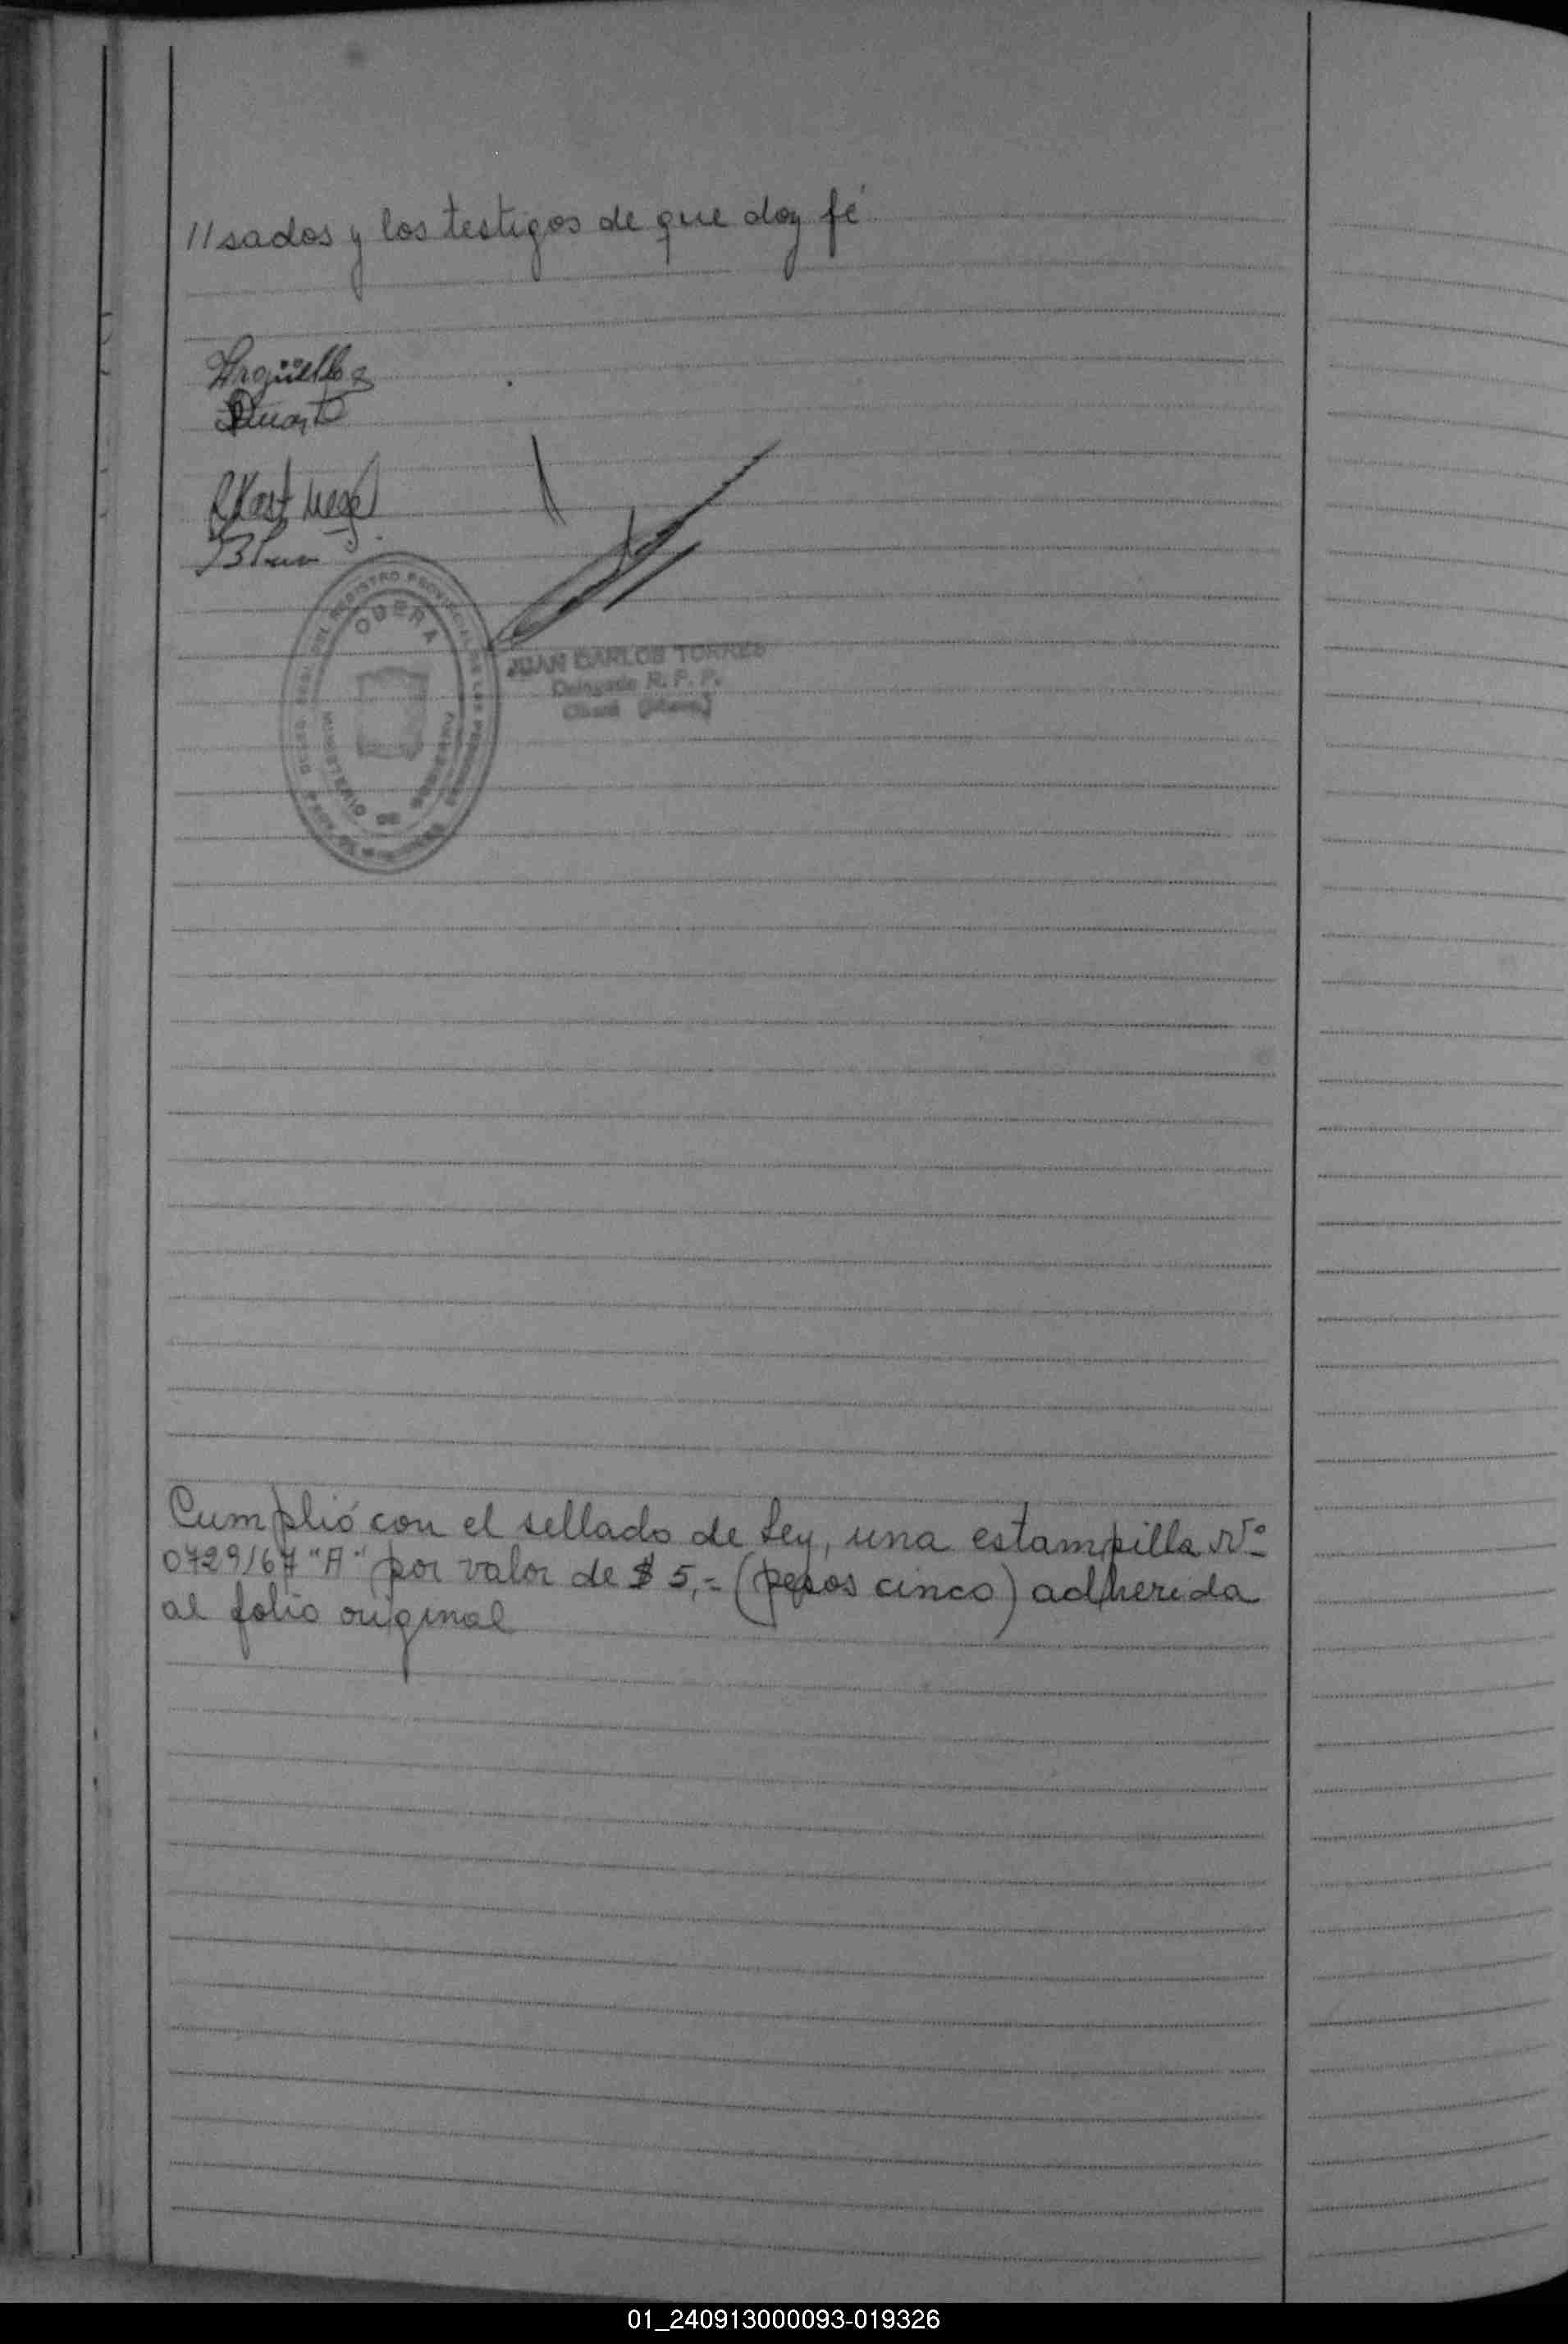 //sados y los testigos de que doy fé
Argüello
Duarte
OBERA
MINISTERIO DE
JUAN CARLOS TORRES
Delegado R. P. P.
Oberá (Mnes.)
Cumplió con el sellado de Ley, una estampilla Nº
0729167 "A" por valor de $ 5,= (pesos cinco) adherida
al folio original
01_240913000093-019326